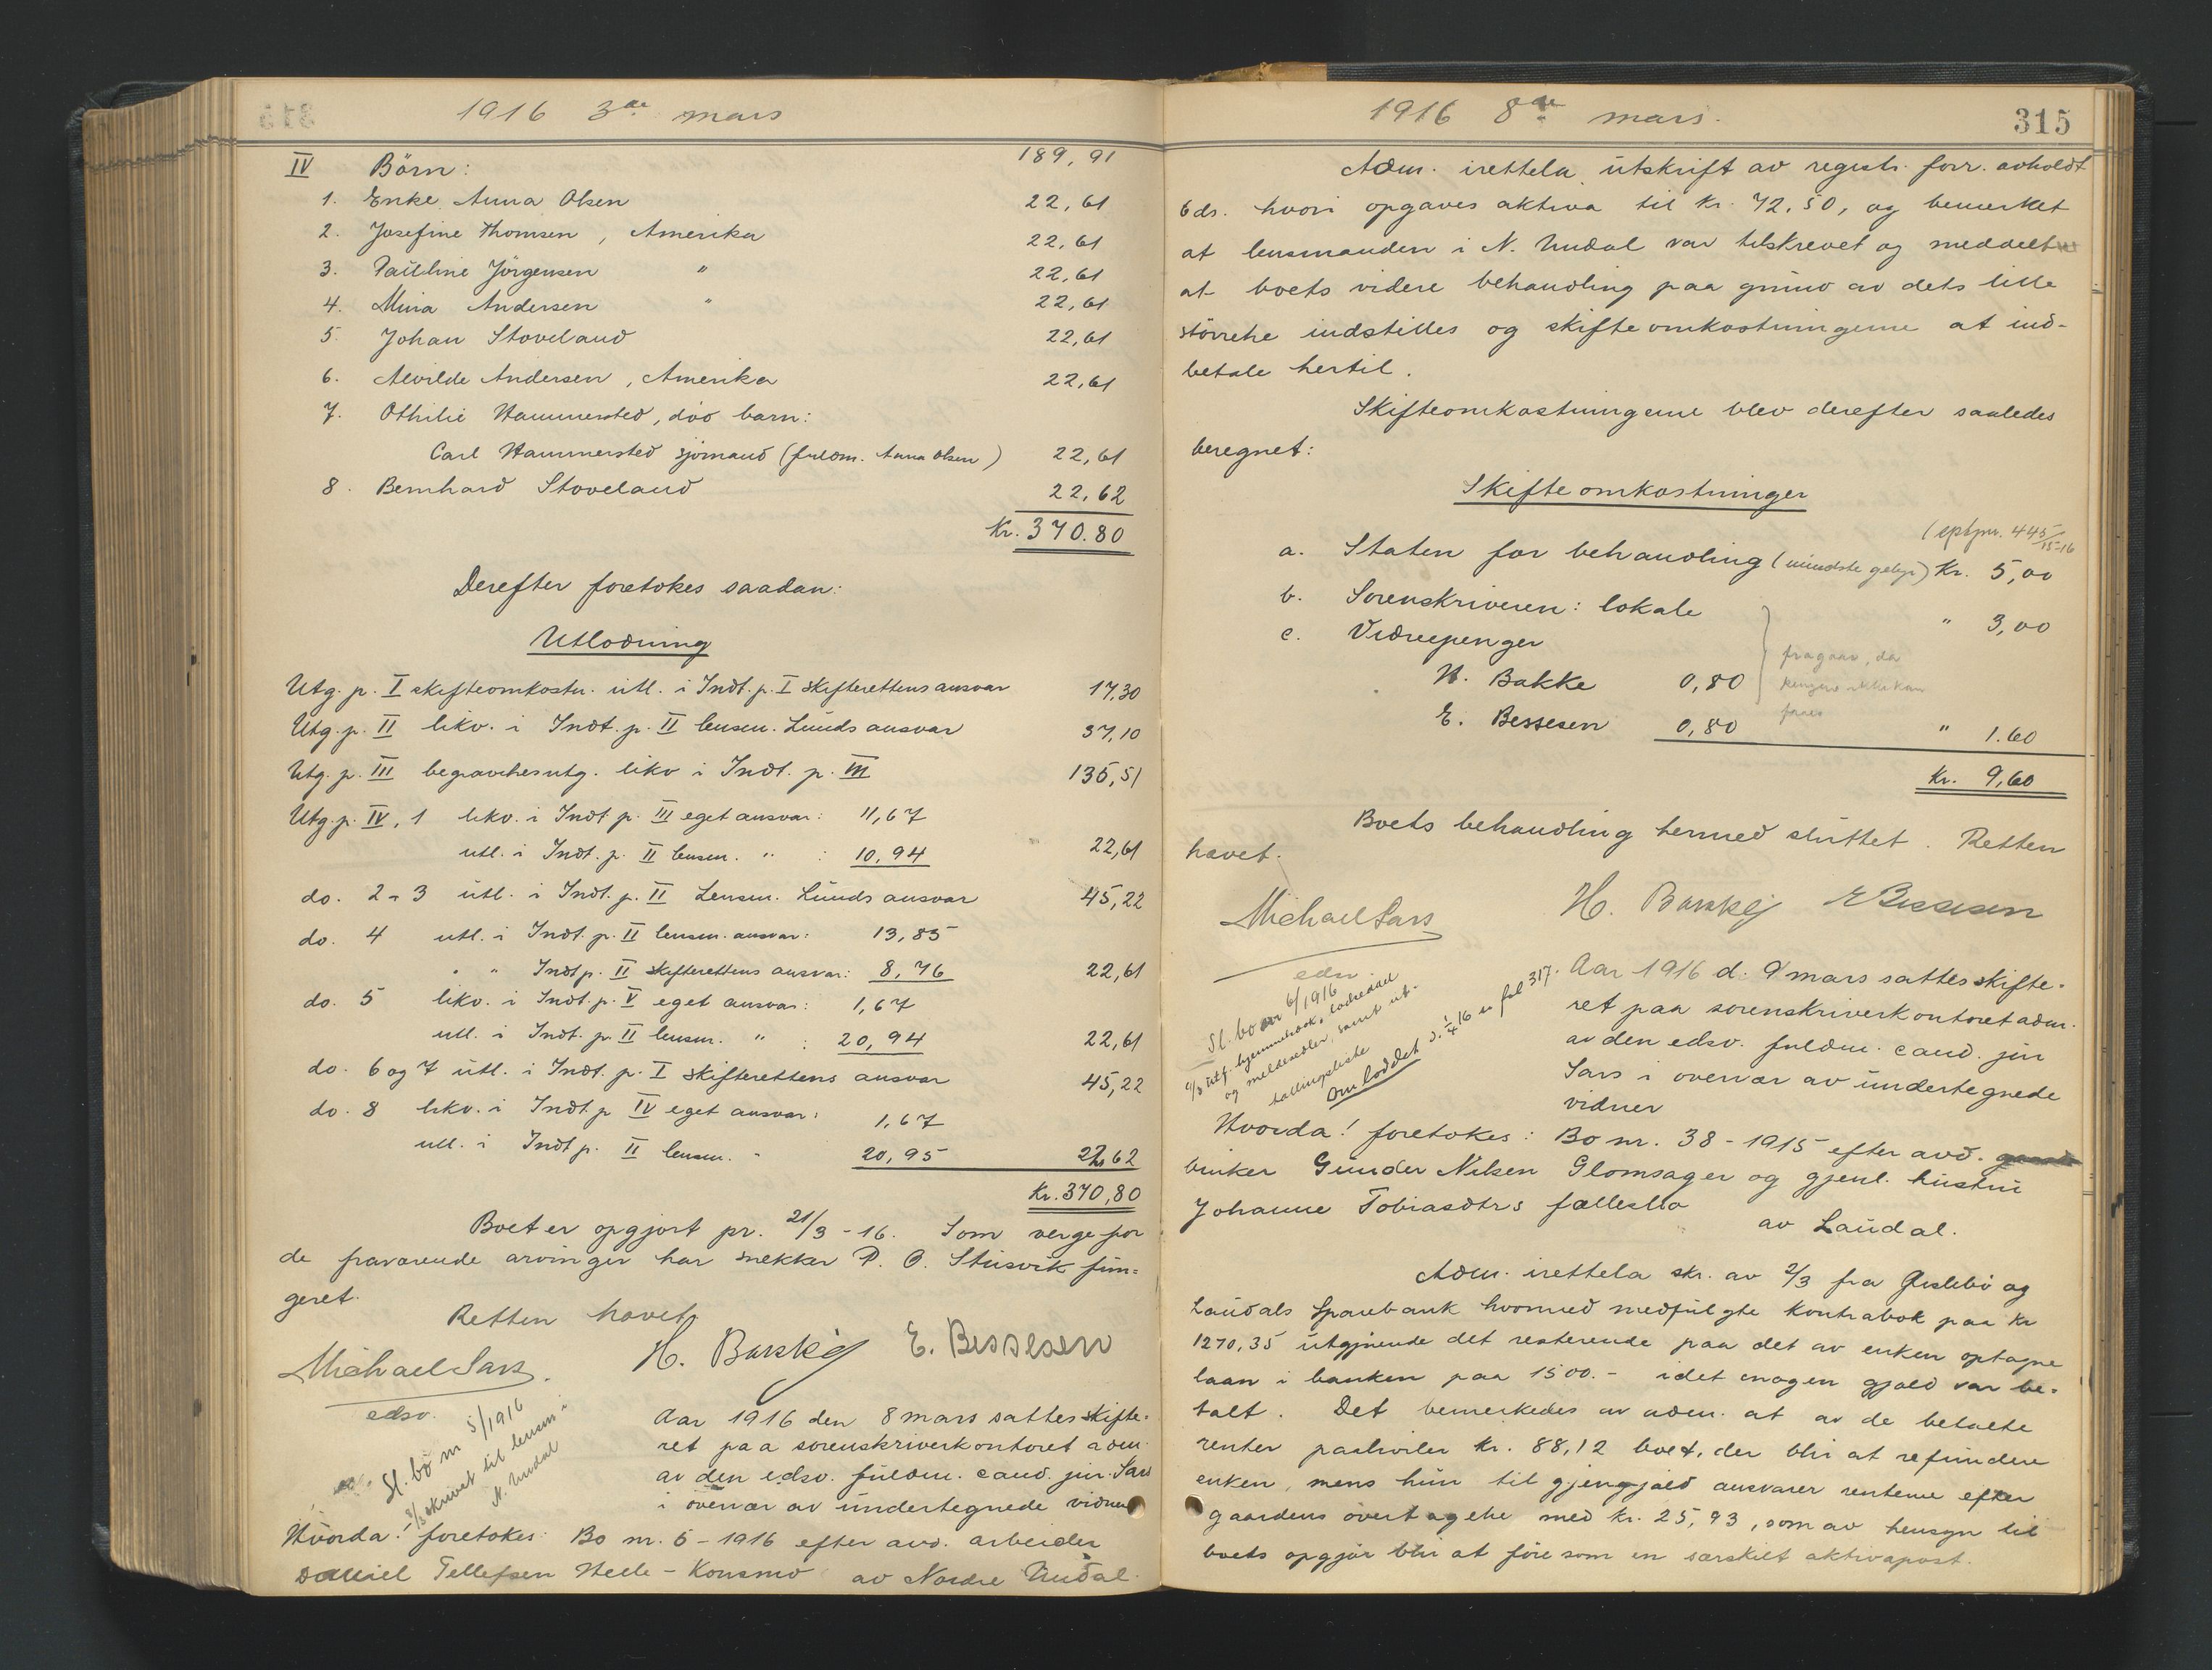 1916 3de mars
IV Börn: 189,91
1. Enke Anna Olsen 22,61
2. Josefine Thomsen, Amerika 22,61
3. Paüline Jörgensen " 22,61
4. Mina Andersen " 22,61
5. Johan Stoveland 22,61
6. Alvilde Andersen, Amerika 22,61
7. Othilie Hammersted, död barn:
Carl Hammersted sjömand (fuldm. Anna Olsen) 22,61
8. Bernhard Stoveland 22,62
Kr. 370.80
Derefter foretokes saadan:
Utlodning
Utg. p. I skifteomkostn. utl. i Indt. p. I skifterettens ansvar 17,30
Utg. p. II likv. i Indt. p. II lensm. Lunds ansvar 37,10
Utg. p. III begravelsesutg. likv i Indt. p. III 135,51
Utg. p. IV, 1 likv. i Indt p. III eget ansvar: 11,67
utl. i Indt. p. II lensm. " : 10,94 22,61
do. 2 - 3 utl. i Indt. p. II Lensm. Lunds ansvar 45,22
do. 4 utl. i Indt. p. II lensm. ansvar: 13,85
" " Indt p. II skifterettens ansvar: 8,76 22,61
do. 5 likv. i Indt. p. V eget ansvar: 1,67
utl. i Indt. p. II lensm. " : 20,94 22,61
do. 6 og 7 utl. i Indt. p. I skifterettens ansvar 45,22
do. 8 likv. i Indt p IV eget ansvar: 1,67
utl. i Indt p. II lensm. " 20,95 22,62
Kr. 370,80
Boet er opgjort pr. 21/3 - 16. Som verge for
de fraværende arvinger har snekker P. O. Stusvik fun=
geret.
Retten hævet
Michael Sars. H. Barskej E. Bessesen
edsv.
Sl. bo nr 5/1916
8/3 skrivet til lensm i
N. Undal
Aar 1916 den 8 mars sattes skifte-
ret paa sorenskriverkontoret adm.
av den edsv. fuldm. cand. jur. Sars
i overvær av undertegnede vidner
Hvorda! foretokes: Bo nr. 5 - 1916 efter avd. arbeider
Daniel Tellefsen Helle - Konsmo av Nordre Undal.
1916 8de mars. 315
Adm. irettela utskrift av registr. forr. avholdt
6 ds. hvori opgaves aktiva til kr. 72,50, og bemerket
at lensmanden i N. Undal var tilskrevet og meddelt
at boets videre behandling paa grund av dets lille
störrelse indstilles og skifteomkostningerne at ind-
betale hertil.
Skifteomkostningerne blev derefter saaledes
beregnet:
Skifteomkostninger
445/15-16
a. Staten for behandling (mindste gebyr) Kr. 5,00
b. Sorenskriveren: lokale " 3,00
c. Vidnepenger
H. Bakke 0,80
fragaar, da
penger ikke kan
faaes
E. Bessesen 0,80 " 1.60
Kr. 9,60
Boets behandling hermed sluttet. Retten
hævet.
Michael Sars H. Barskej E Bessesen
edsv.
Sl. bo nr 6/1916
og meldesedler, samt ut-
Omloddet d. 1/4 16 se fol 317.
Aar 1916 d. 9 mars sattes skifte-
ret paa sorenskriverkontoret adm.
av den edsv. fuldm. cand. jur
Sars i overvær av undertegnede
vidner
Hvorda! foretokes: Bo nr. 38 - 1915 efter avd.
bruker Gunder Nilsen Glomsager og gjenl. hustru
Johanne Tobiasdtrs fællesbo
av Laudal.
Adm. irettela skr. av 2/3 fra Øislebö og
Laudals Sparebank hvormed medfulgte kontrabok paa kr
1270,35 utgjörende det resterende paa det av enken optagne
laan i banken paa 1500.- idet gjæld var be-
talt. Det bemerkedes av adm. at av de betalte
renter paahviler kr. 88,12 boet, der blir at refundere
enken, mens hun til gjengjæld ansvarer renterne efter
gaardens overtagelse med kr. 25,93, som av hensyn til
boets opgjör blir at före som en særskilt aktivapost.